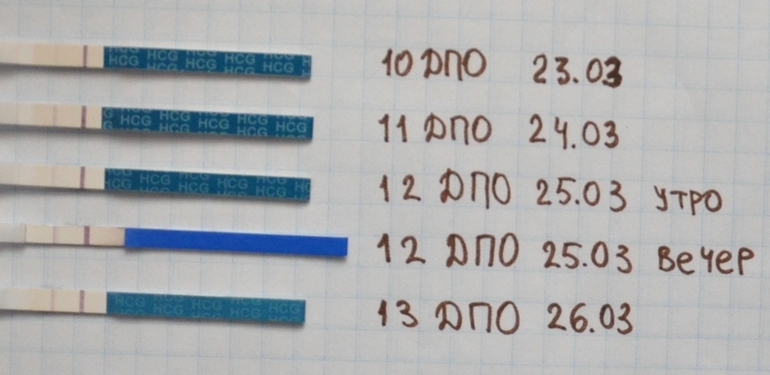 HCG HCG HCG HCG HCG HCG HCG 10 ДПО 23.03
HCG HCG HCG HCG HCG HCG HCG 11 ДПО 24.03
HCG HCG HCG HCG HCG HCG HCG 12 ДПО 25.03 утро
12 ДПО 25.03 вечер
HCG HCG HCG HCG HCG HCG HCG 13 ДПО 26.03